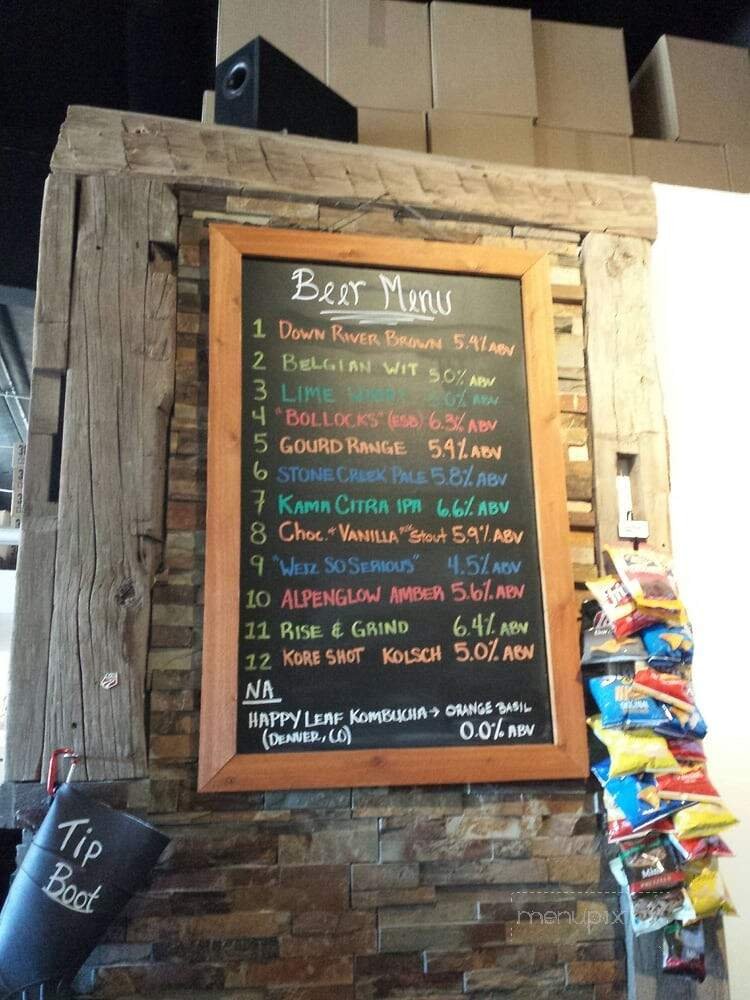 Beer Menu
1 DOWN RIVER BROWN 5.4% ABV
2 BELGIAN WIT 5.0% ABV
3 LIME ABV
4 "BOLLOCKS" (ESB) 6.3% ABV
5 GOURD RANGE 5.4% ABV
6 STONE CREEK PALE 5.8% ABV
7 KAMA CITRA IPA 6.6% ABV
8 CHOC. + VANILLA MILK STOUT 5.9% ABV
9 "WEIZ SO SERIOUS" 4.5% ABV
10 ALPENGLOW AMBER 5.6% ABV
11 RISE & GRIND 6.4% ABV
12 KORE SHOT KOLSCH 5.0% ABV
NA
HAPPY LEAF KOMBUCHA → ORANGE BASIL
(DENVER, CO) 0.0% ABV
Tip
Boot
menupix